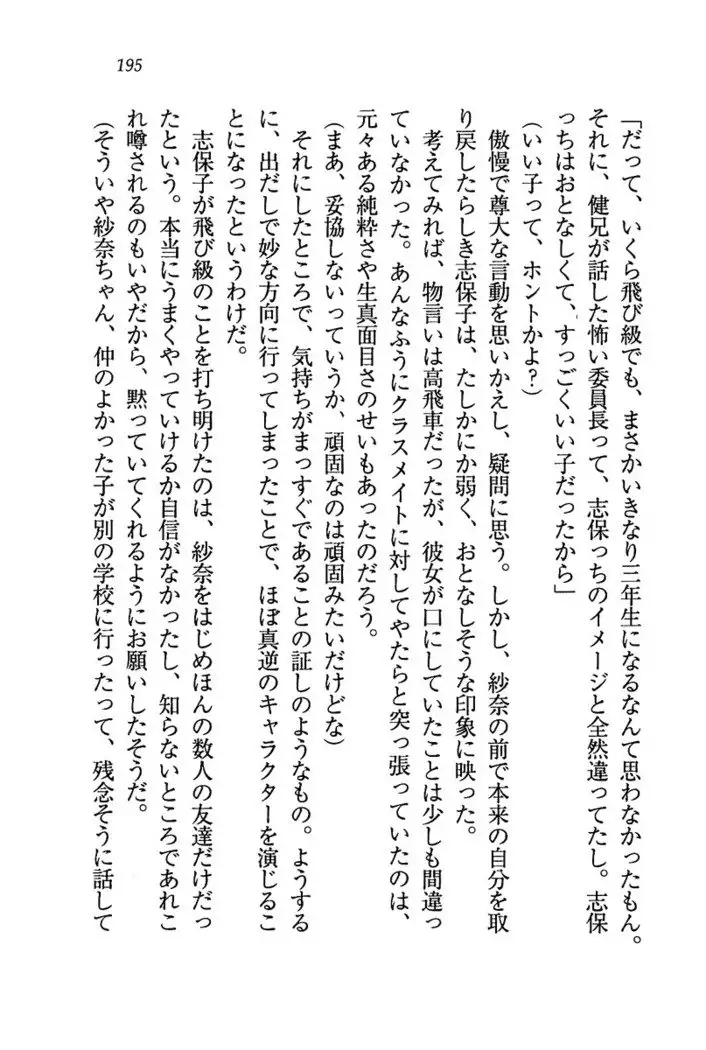 195
「だって、いくら飛び級でも、まさかいきなり三年生になるなんて思わなかったもん。
それに、健兄が話した怖い委員長って、志保っちのイメージと全然違ってたし。志保
っちはおとなしくて、すっごくいい子だったから」
(いい子って、ホントかよ?)
傲慢で尊大な言動を思いかえし、疑問に思う。しかし、紗奈の前で本来の自分を取
り戻したらしき志保子は、たしかにか弱く、おとなしそうな印象に映った。
考えてみれば、物言いは高飛車だったが、彼女が口にしていたことは少しも間違っ
ていなかった。あんなふうにクラスメイトに対してやたらと突っ張っていたのは、
元々ある純粋さや生真面目さのせいもあったのだろう。
(まあ、妥協しないっていうか、頑固なのは頑固みたいだけどな)
それにしたところで、気持ちがまっすぐであることの証しのようなもの。ようする
に、出だしで妙な方向に行ってしまったことで、ほぼ真逆のキャラクターを演じるこ
とになったというわけだ。
志保子が飛び級のことを打ち明けたのは、紗奈をはじめほんの数人の友達だけだっ
たという。本当にうまくやっていけるか自信がなかったし、知らないところであれこ
れ噂されるのもいやだから、黙っていてくれるようにお願いしたそうだ。
(そういや紗奈ちゃん、仲のよかった子が別の学校に行ったって、残念そうに話して